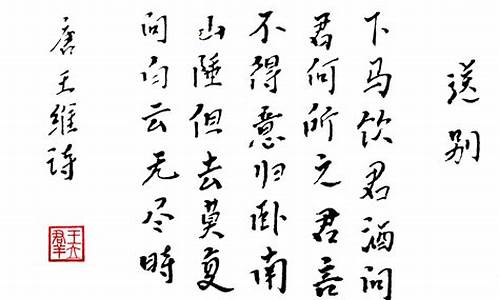 送别
下马饮君酒问
君何所之君言
不得意归卧南
山陲但去莫复
问白云无尽时
唐王维诗